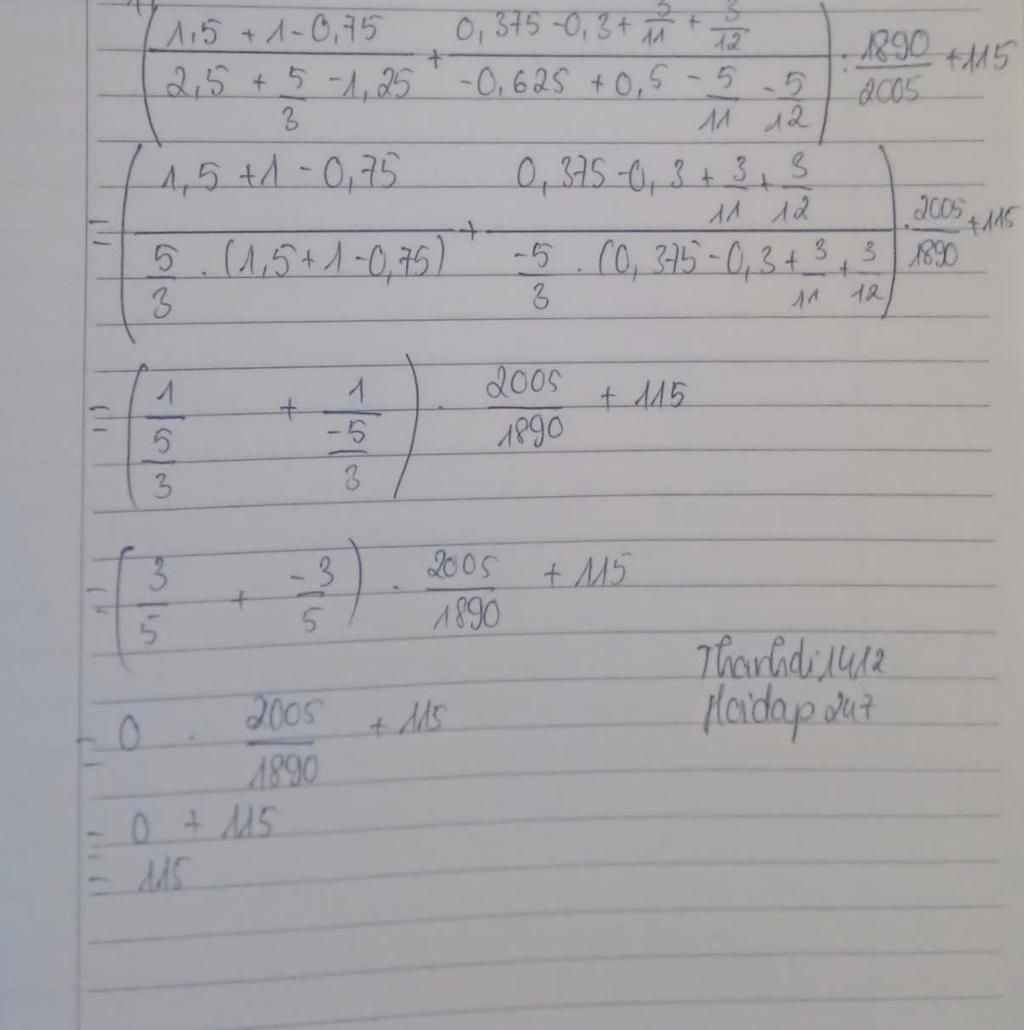 (1,5 + 1 - 0,75 / 2,5 + 5/3 - 1,25 + 0,375 - 0,3 + 3/11 + 3/12 / -0,625 + 0,5 - 5/11 - 5/12) : 1890/2005 + 115
= (1,5 + 1 - 0,75 / 5/3 . (1,5 + 1 - 0,75) + 0,375 - 0,3 + 3/11 + 3/12 / -5/3 . (0,375 - 0,3 + 3/11 + 3/12) . 2005/1890 + 115
= (1 / 5/3 + 1 / -5/3) . 2005/1890 + 115
= (3/5 + -3/5) . 2005/1890 + 115
Thanhdi1412
= 0 . 2005/1890 + 115
Hoidap247
= 0 + 115
= 115